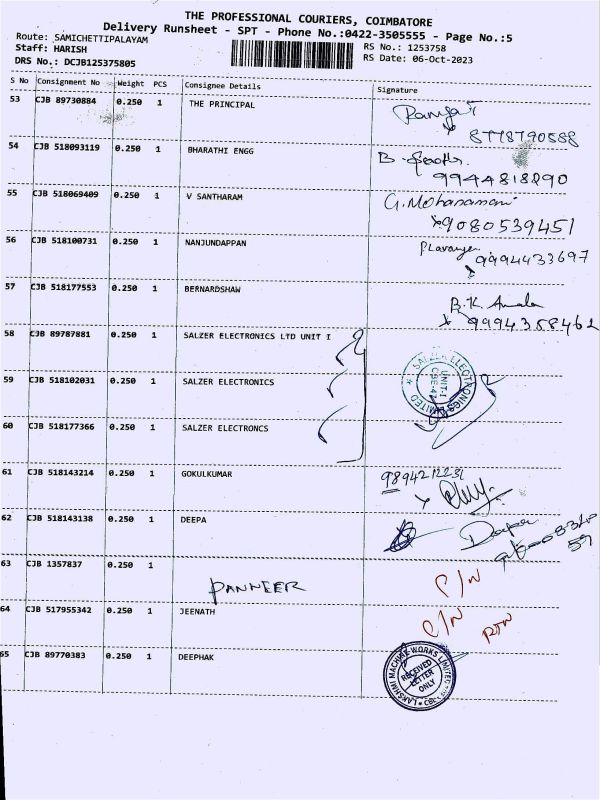 THE PROFESSIONAL COURIERS, COIMBATORE
Delivery Runsheet - SPT - Phone No.:0422-3505555 - Page No.:5
Route: SAMICHETTIPALAYAM
Staff: HARISH RS No.: 1253758
DRS No.: DCJB125375805 RS Date: 06-Oct-2023
S No Consignment No Weight PCS Consignee Details Signature
53 CJB 89730884 0.250 1 THE PRINCIPAL
8778790588
54 CJB 518093119 0.250 1 BHARATHI ENGG B.
9944818890
55 CJB 518069409 0.250 1 V SANTHARAM G. Mohanamani
9080539451
56 CJB 518100731 0.250 1 NANJUNDAPPAN
9994433697
57 CJB 518177553 0.250 1 BERNARDSHAW B.K. Amala
9994358462
58 CJB 89787881 0.250 1 SALZER ELECTRONICS LTD UNIT I
SALZER ELECTRONICS LIMITED
UNIT-I
59 CJB 518102031 0.250 1 SALZER ELECTRONICS
60 CJB 518177366 0.250 1 SALZER ELECTRONCS
61 CJB 518143214 0.250 1 GOKULKUMAR
62 CJB 518143138 0.250 1 DEEPA Deepa
59
63 CJB 1357837 0.250 1 PANNEER C/N
64 CJB 517955342 0.250 1 JEENATH C/N RTN
65 CJB 89770383 0.250 1 DEEPHAK
LAKSHMI MACHINE WORKS LIMITED
RECEIVED
LETTER
ONLY